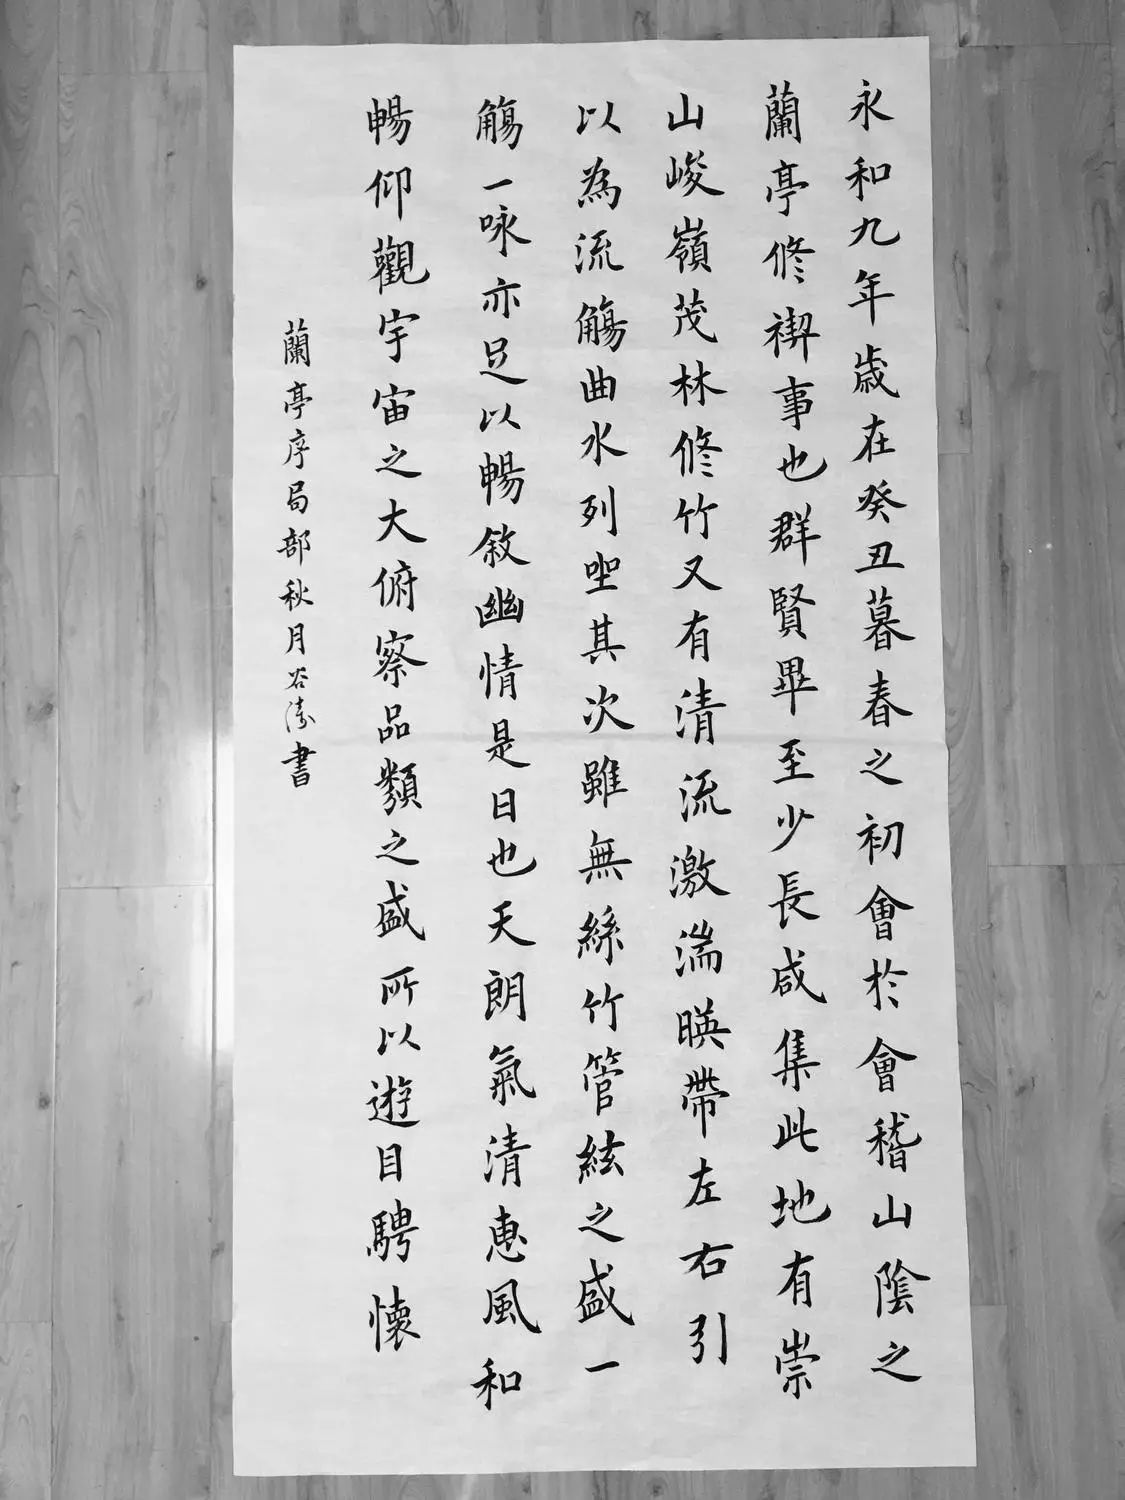 永和九年歲在癸丑暮春之初會於會稽山陰之
蘭亭修禊事也群賢畢至少長咸集此地有崇
山峻嶺茂林修竹又有清流激湍暎帶左右引
以為流觴曲水列坐其次雖無絲竹管絃之盛一
觴一咏亦足以暢敘幽情是日也天朗氣清惠風和
暢仰觀宇宙之大俯察品類之盛所以遊目騁懷
蘭亭序局部秋月谷書